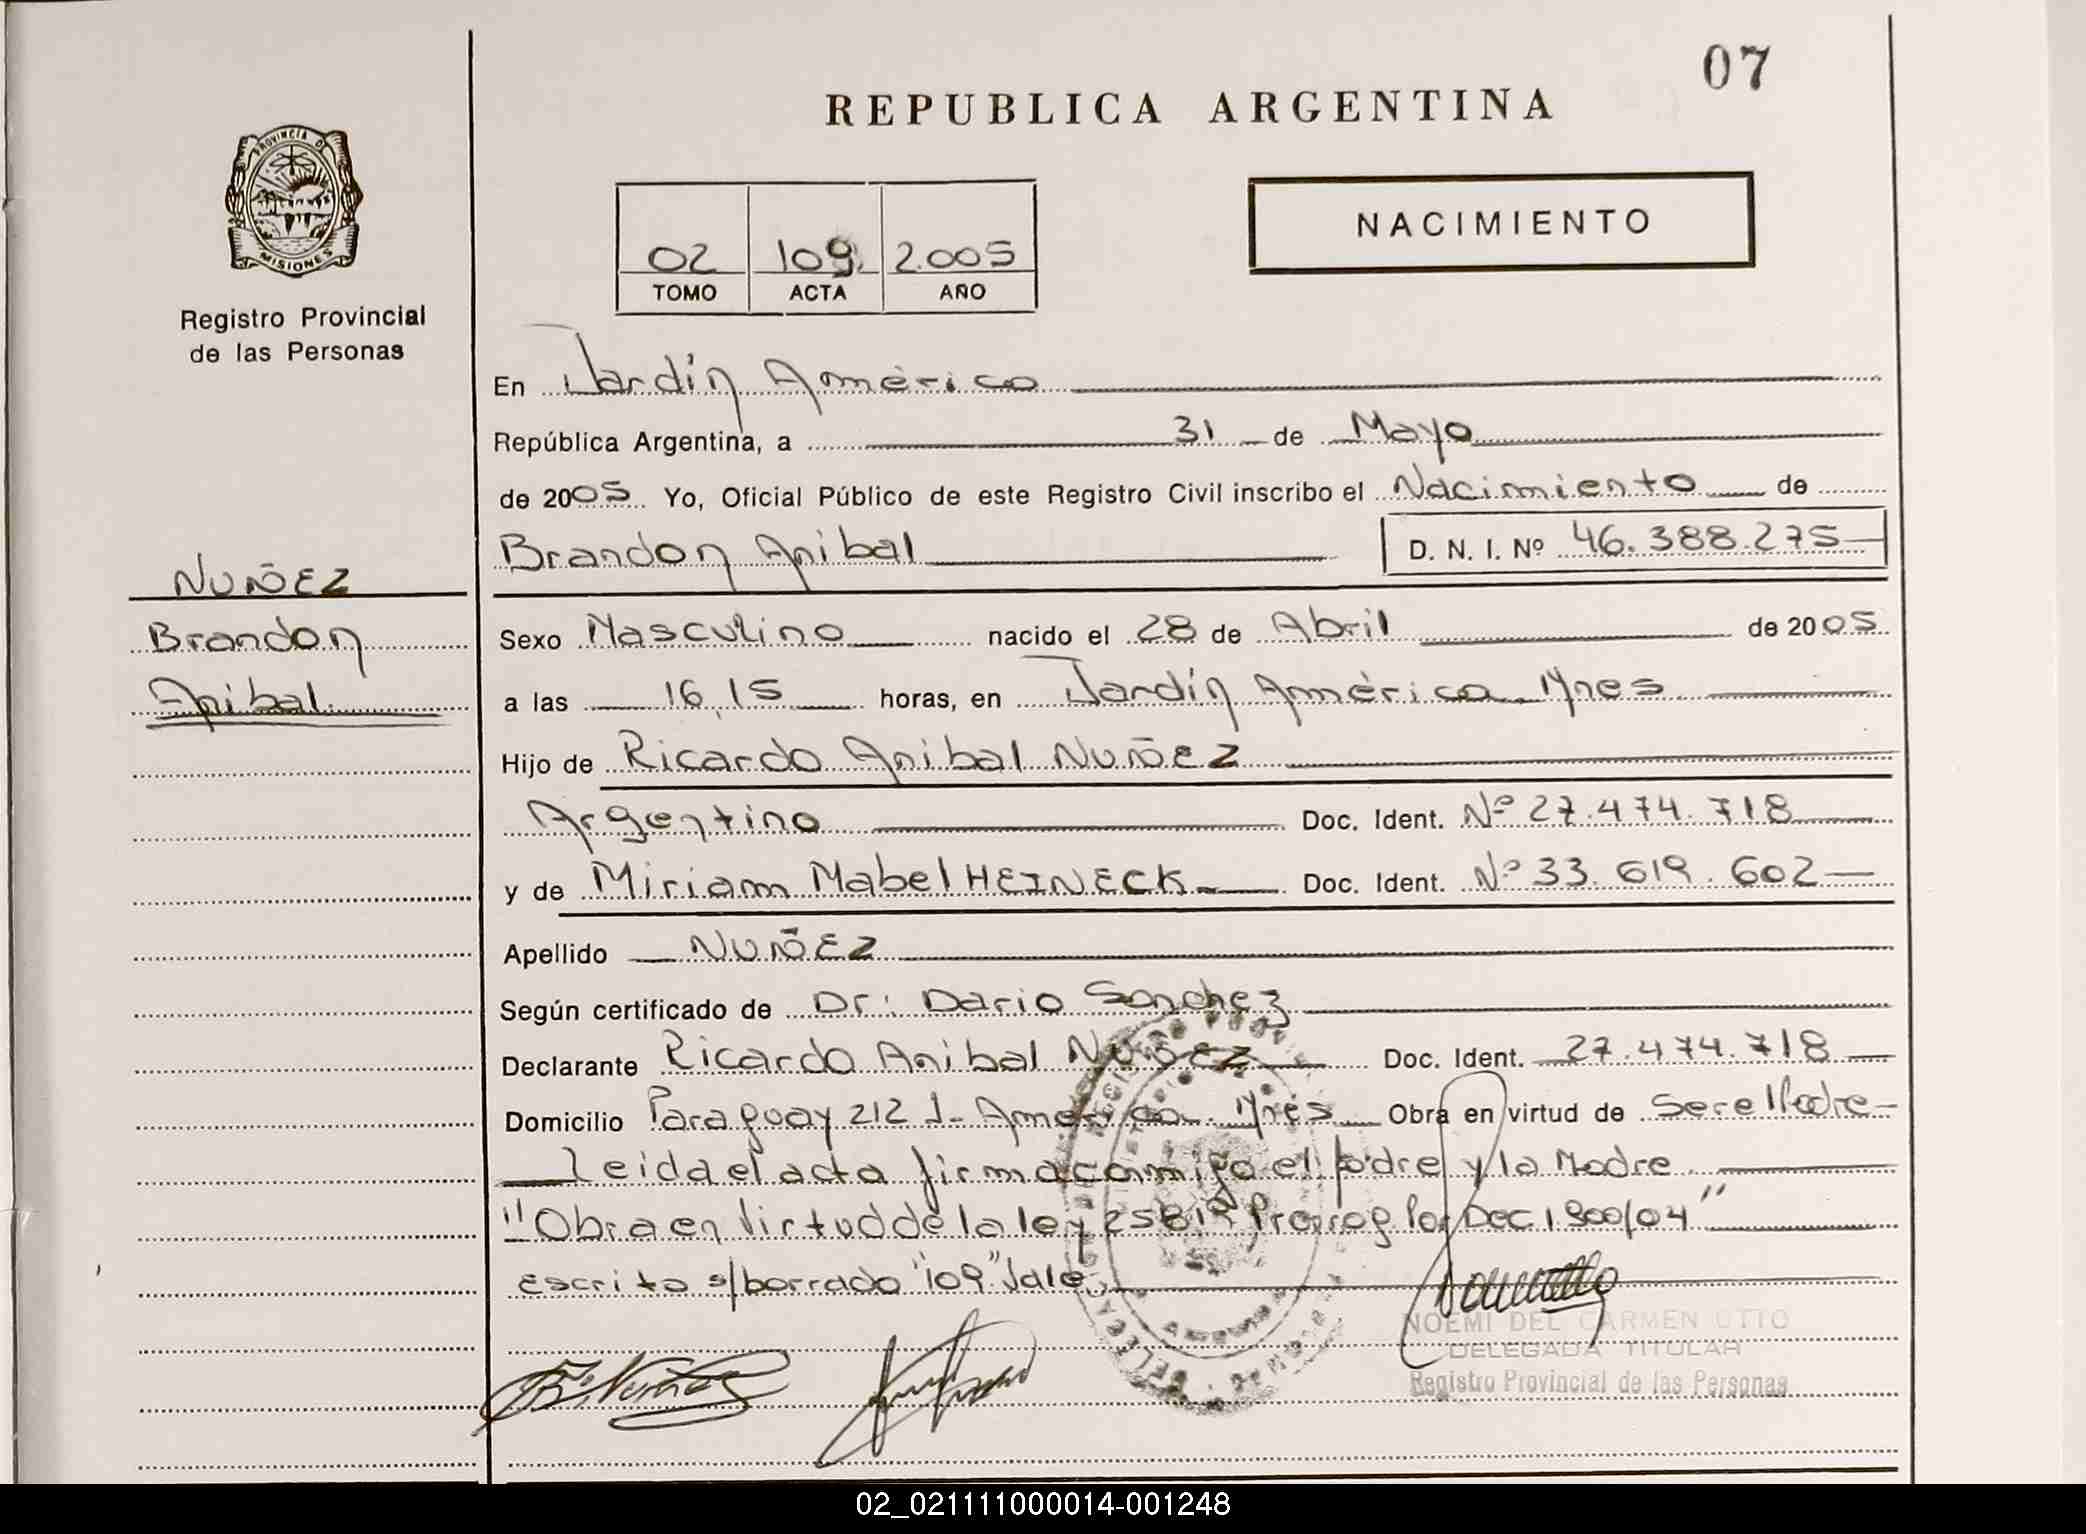 07
REPUBLICA ARGENTINA
PROVINCIA DE
MISIONES
Registro Provincial
de las Personas
NACIMIENTO
02 109 2.005
TOMO ACTA AÑO
En Jardín América
República Argentina, a 31 de Mayo
de 2005. Yo, Oficial Público de este Registro Civil inscribo el Nacimiento de
Brandon Anibal D. N. I. Nº 46.388.275
NUÑEZ
Brandon
Anibal
Sexo Masculino nacido el 28 de Abril de 2005
a las 16,15 horas, en Jardín América Mnes
Hijo de Ricardo Anibal NUÑEZ
Argentino Doc. Ident. Nº 27.474.718
y de Miriam Mabel HEINECK Doc. Ident. Nº 33.619.602
Apellido NUÑEZ
Según certificado de Dr: Dario Sanchez
Declarante Ricardo Anibal NUÑEZ Doc. Ident. 27.474.718
Domicilio Paraguay 212 J- América Mnes Obra en virtud de Ser el Padre
Leida el acta firma conmigo el padre y la Madre
"Obra en Virtud de la ley 25819 Prorrog Por Dec 1900/04"
Escrito s/borrado "109" Vale
NOEMI DEL CARMEN OTTO
DELEGADA TITULAR
Registro Provincial de las Personas
02_021111000014-001248